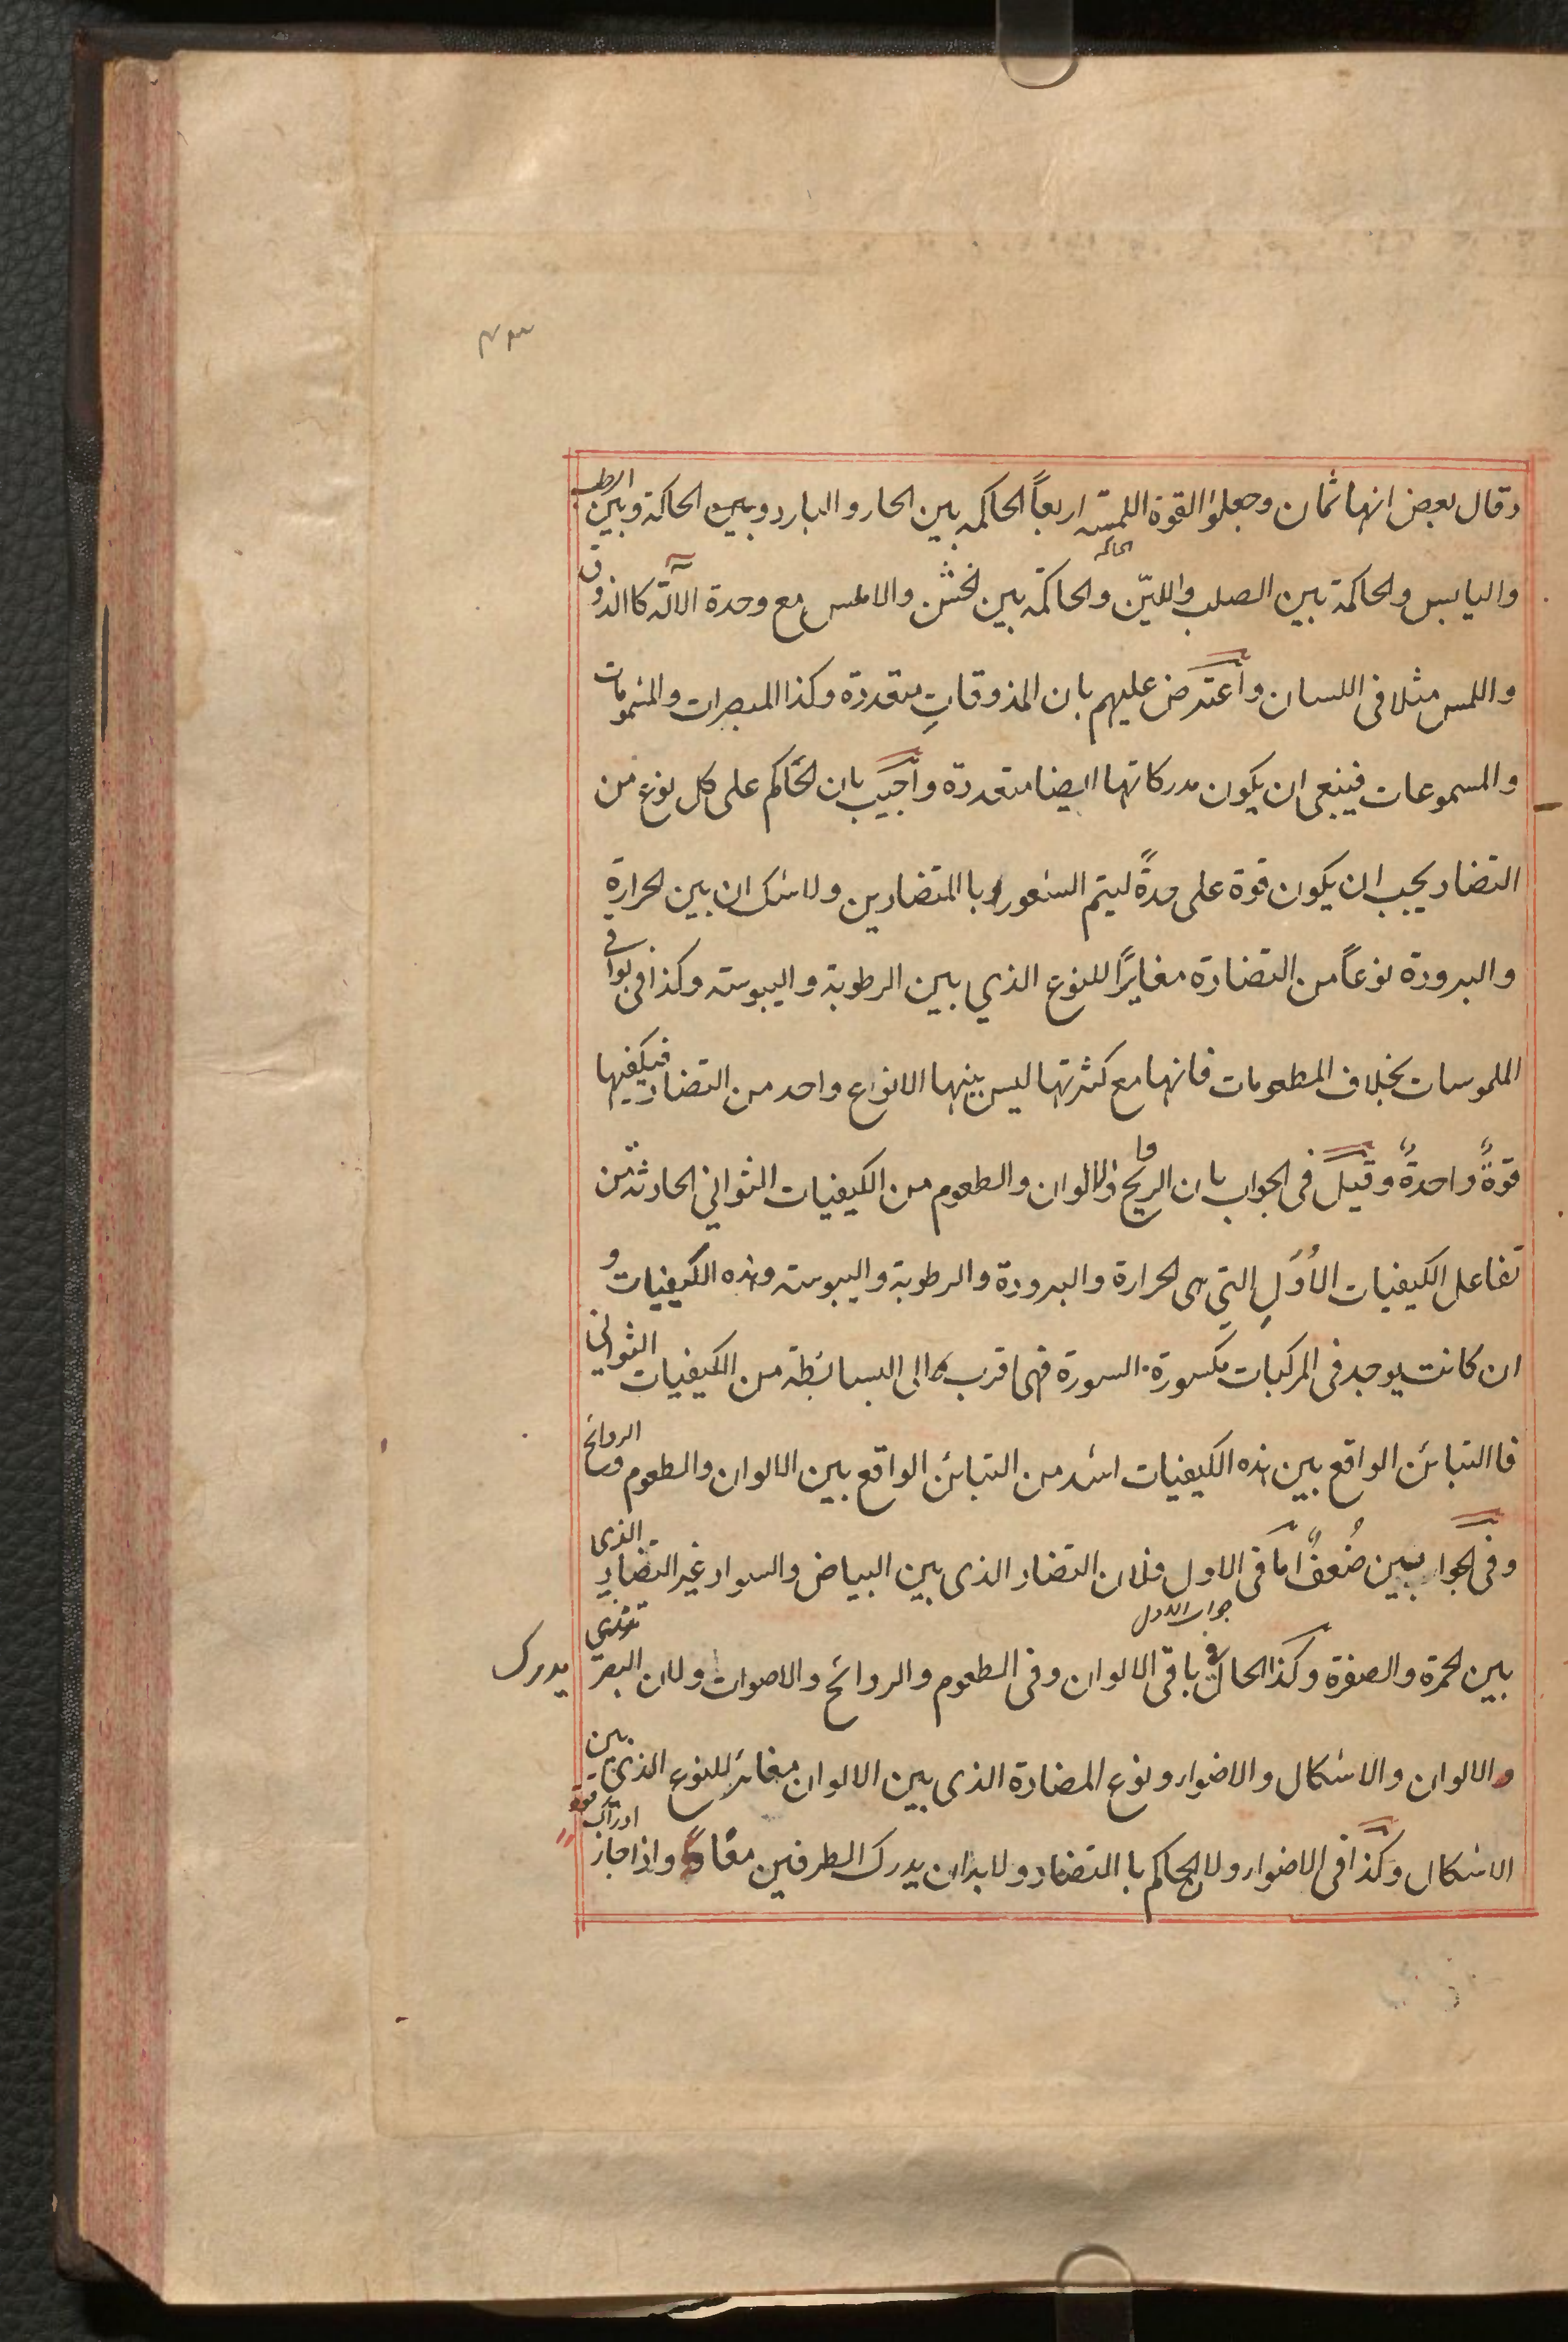 وقال بعض انها ثمان وجعلوا القوة اللمسة اربعاً الحاكمه بين الحار والبارد وبين الحاكمة وبين الرطب
واليابس والحاكمة بين الصلب والليّن والحاكمة بين الخشن والاملس مع وحدة الآلة كاالذوق
واللمس مثلا فى اللسان وأعترض عليهم بان المذوقاتِ متعددة وكذا المبصرات والمشمومات
والمسموعات فينبغى ان يكون مدركاتها ايضا متعددة وأجيب بان الحاكم على كل نوع من
التضاد يجب ان يكون قوة على حدةً ليتم الشعور باالمتضادين ولاشك ان بين الحرارة
والبرودة نوعاً من التضادة مغايرًا للنوع الذي بين الرطوبة واليبوسته وكذا فى بواقى
الملموسات بخلاف المطعومات فانها مع كثرتها ليس بينها الانواع واحد من التضاد فيكفيها
قوةً واحدةً وقيل فى الجواب بان الريح والالوان والطعوم من الكيفيات الثواني الحادثة من
تفاعل الكيفيات الأُوَلِ التي هى الحرارة والبرودة والرطوبة واليبوسته وهذه الكيفيات و
ان كانت يوجد فى المركبات مكسورة السورة فهى اقرب الى البسائطة من الكيفيات الثواني
فاالتبائن الواقع بين هذه الكيفيات اشد من التبائن الواقع بين الالوان والطعوم والروائح
وفى الجوابين ضُعفٌ امّا فى الاول فلان التضاد الذى بين البياض والسواد غير التضادِ الذى
جواب الاول
بين الحمرة والصفرة وكذا الحال فى باقى الالوان وفى الطعوم والروائح والاصوات ولان البصر يدرك
والالوان والاشكال والاضواء ونوع المضادة الذى بين الالوان مغائر للنوع الذى بين
الاشكال وكذا فى الاضواء ولان الحاكم باالتضاد ولابد ان يدرك الطرفين معًا واذا جاز ادراك قوة